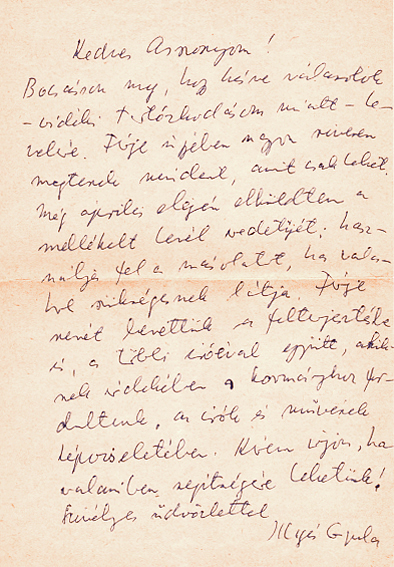 Kedves Asszonyom!
Bocsásson meg, hogy késve válaszolok
– vidéki tartózkodásom miatt – le-
velére. Férje ügyében nagyon szívesen
megteszek mindent, amit csak lehet.
Még április elején elküldtem a
mellékelt levél eredetijét; hasz-
nálja fel a másolatot, ha vala-
hol szükségesnek látja. Férje
nevét bevettük a felterjesztésbe
is, a többi íróéval együtt, akik-
nek érdekében a kormányhoz for-
dultunk, az írók és művészek
képviseletében. Kérem írjon, ha
valamiben segítségére lehetünk!
Szívélyes üdvözlettel
Illyés Gyula